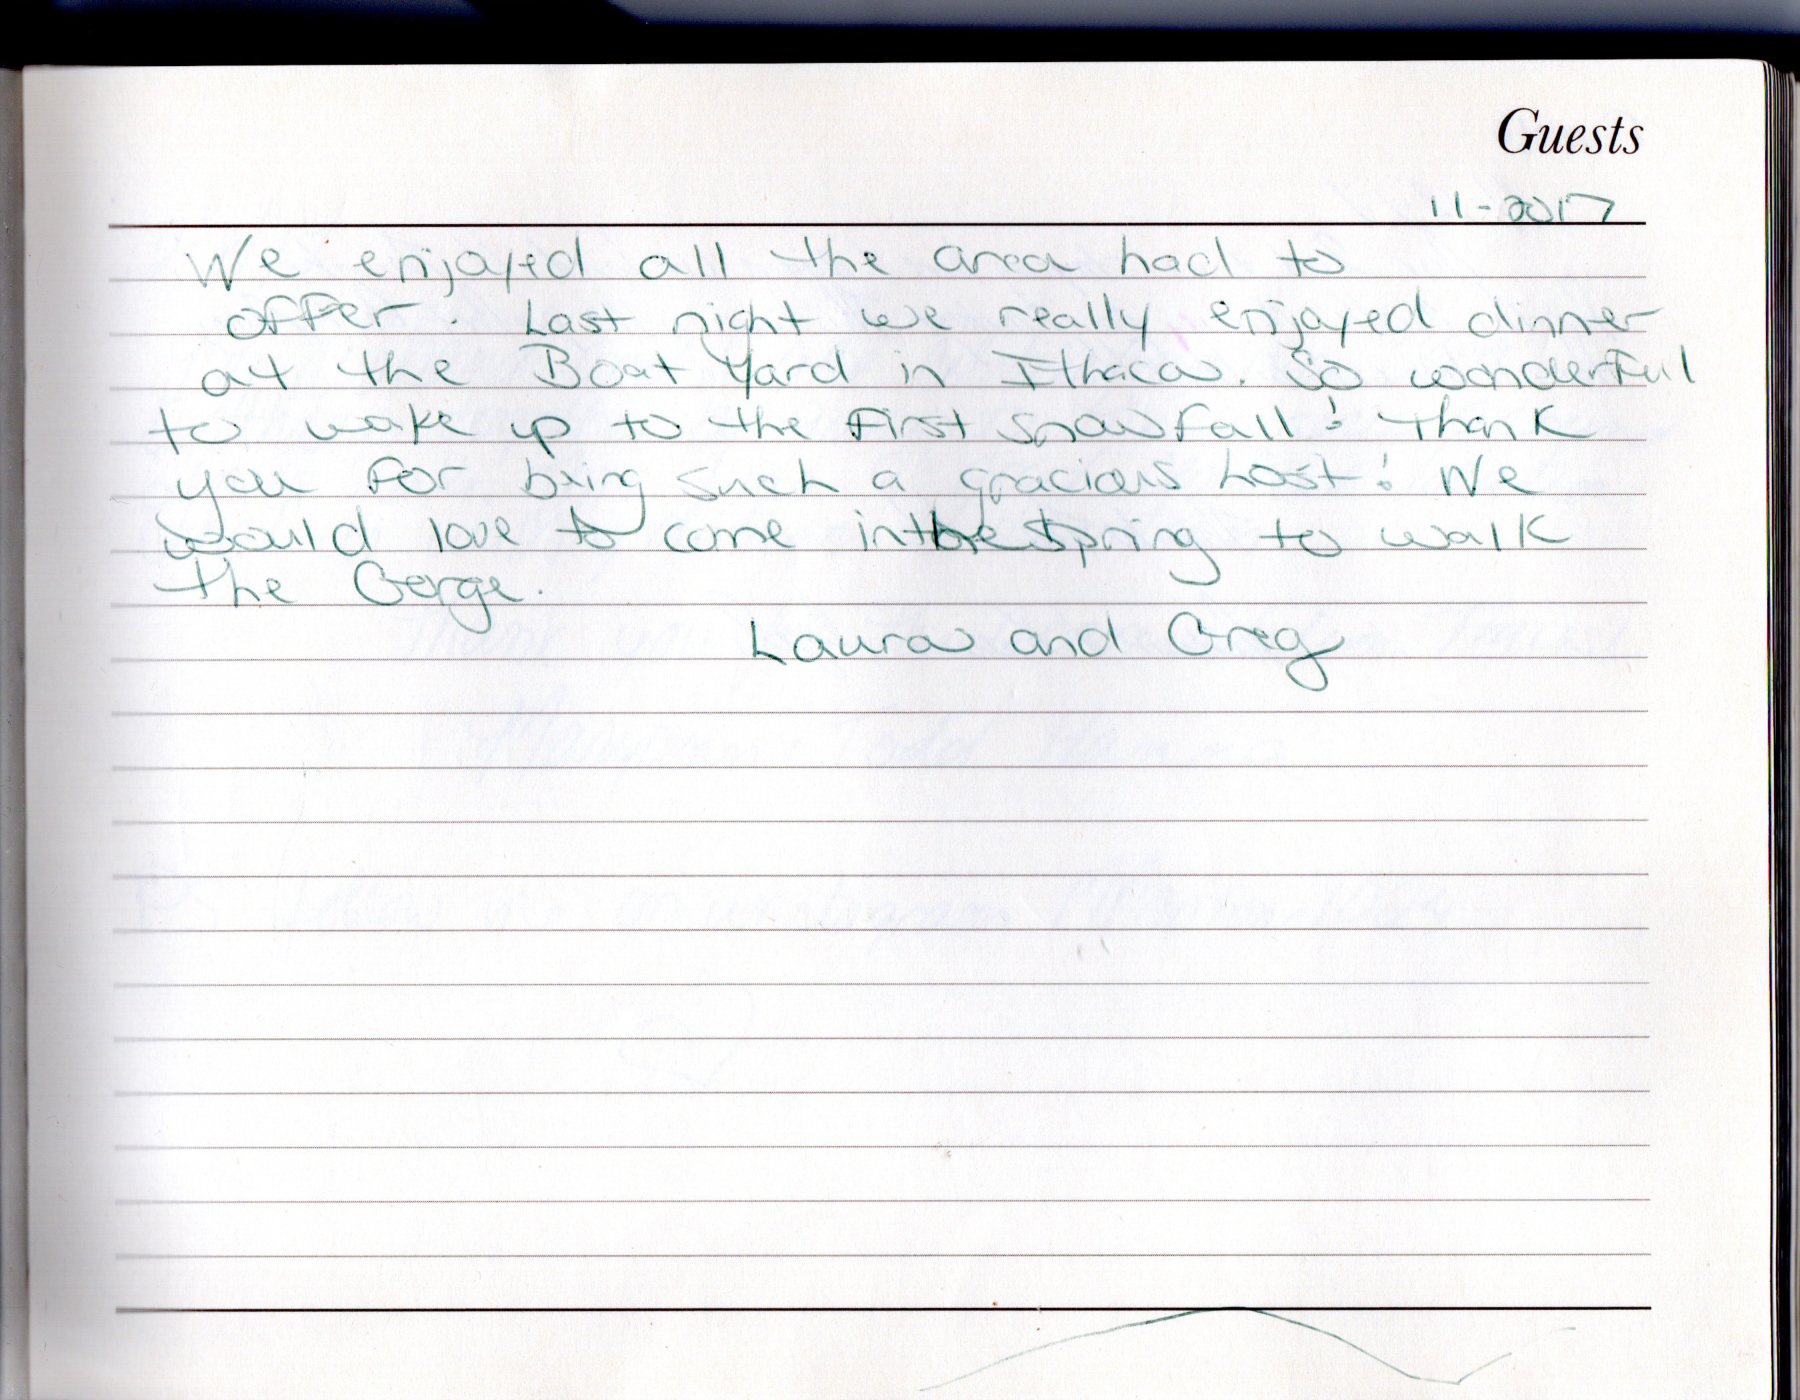 Guests
11-2017
We enjoyed all the area had to
offer. Last night we really enjoyed dinner
at the Boat Yard in Ithaca. So wonderful
to wake up to the first snowfall! Thank
you for being such a gracious host! We
would love to come in the Spring to walk
the Gorge.
Laura and Greg